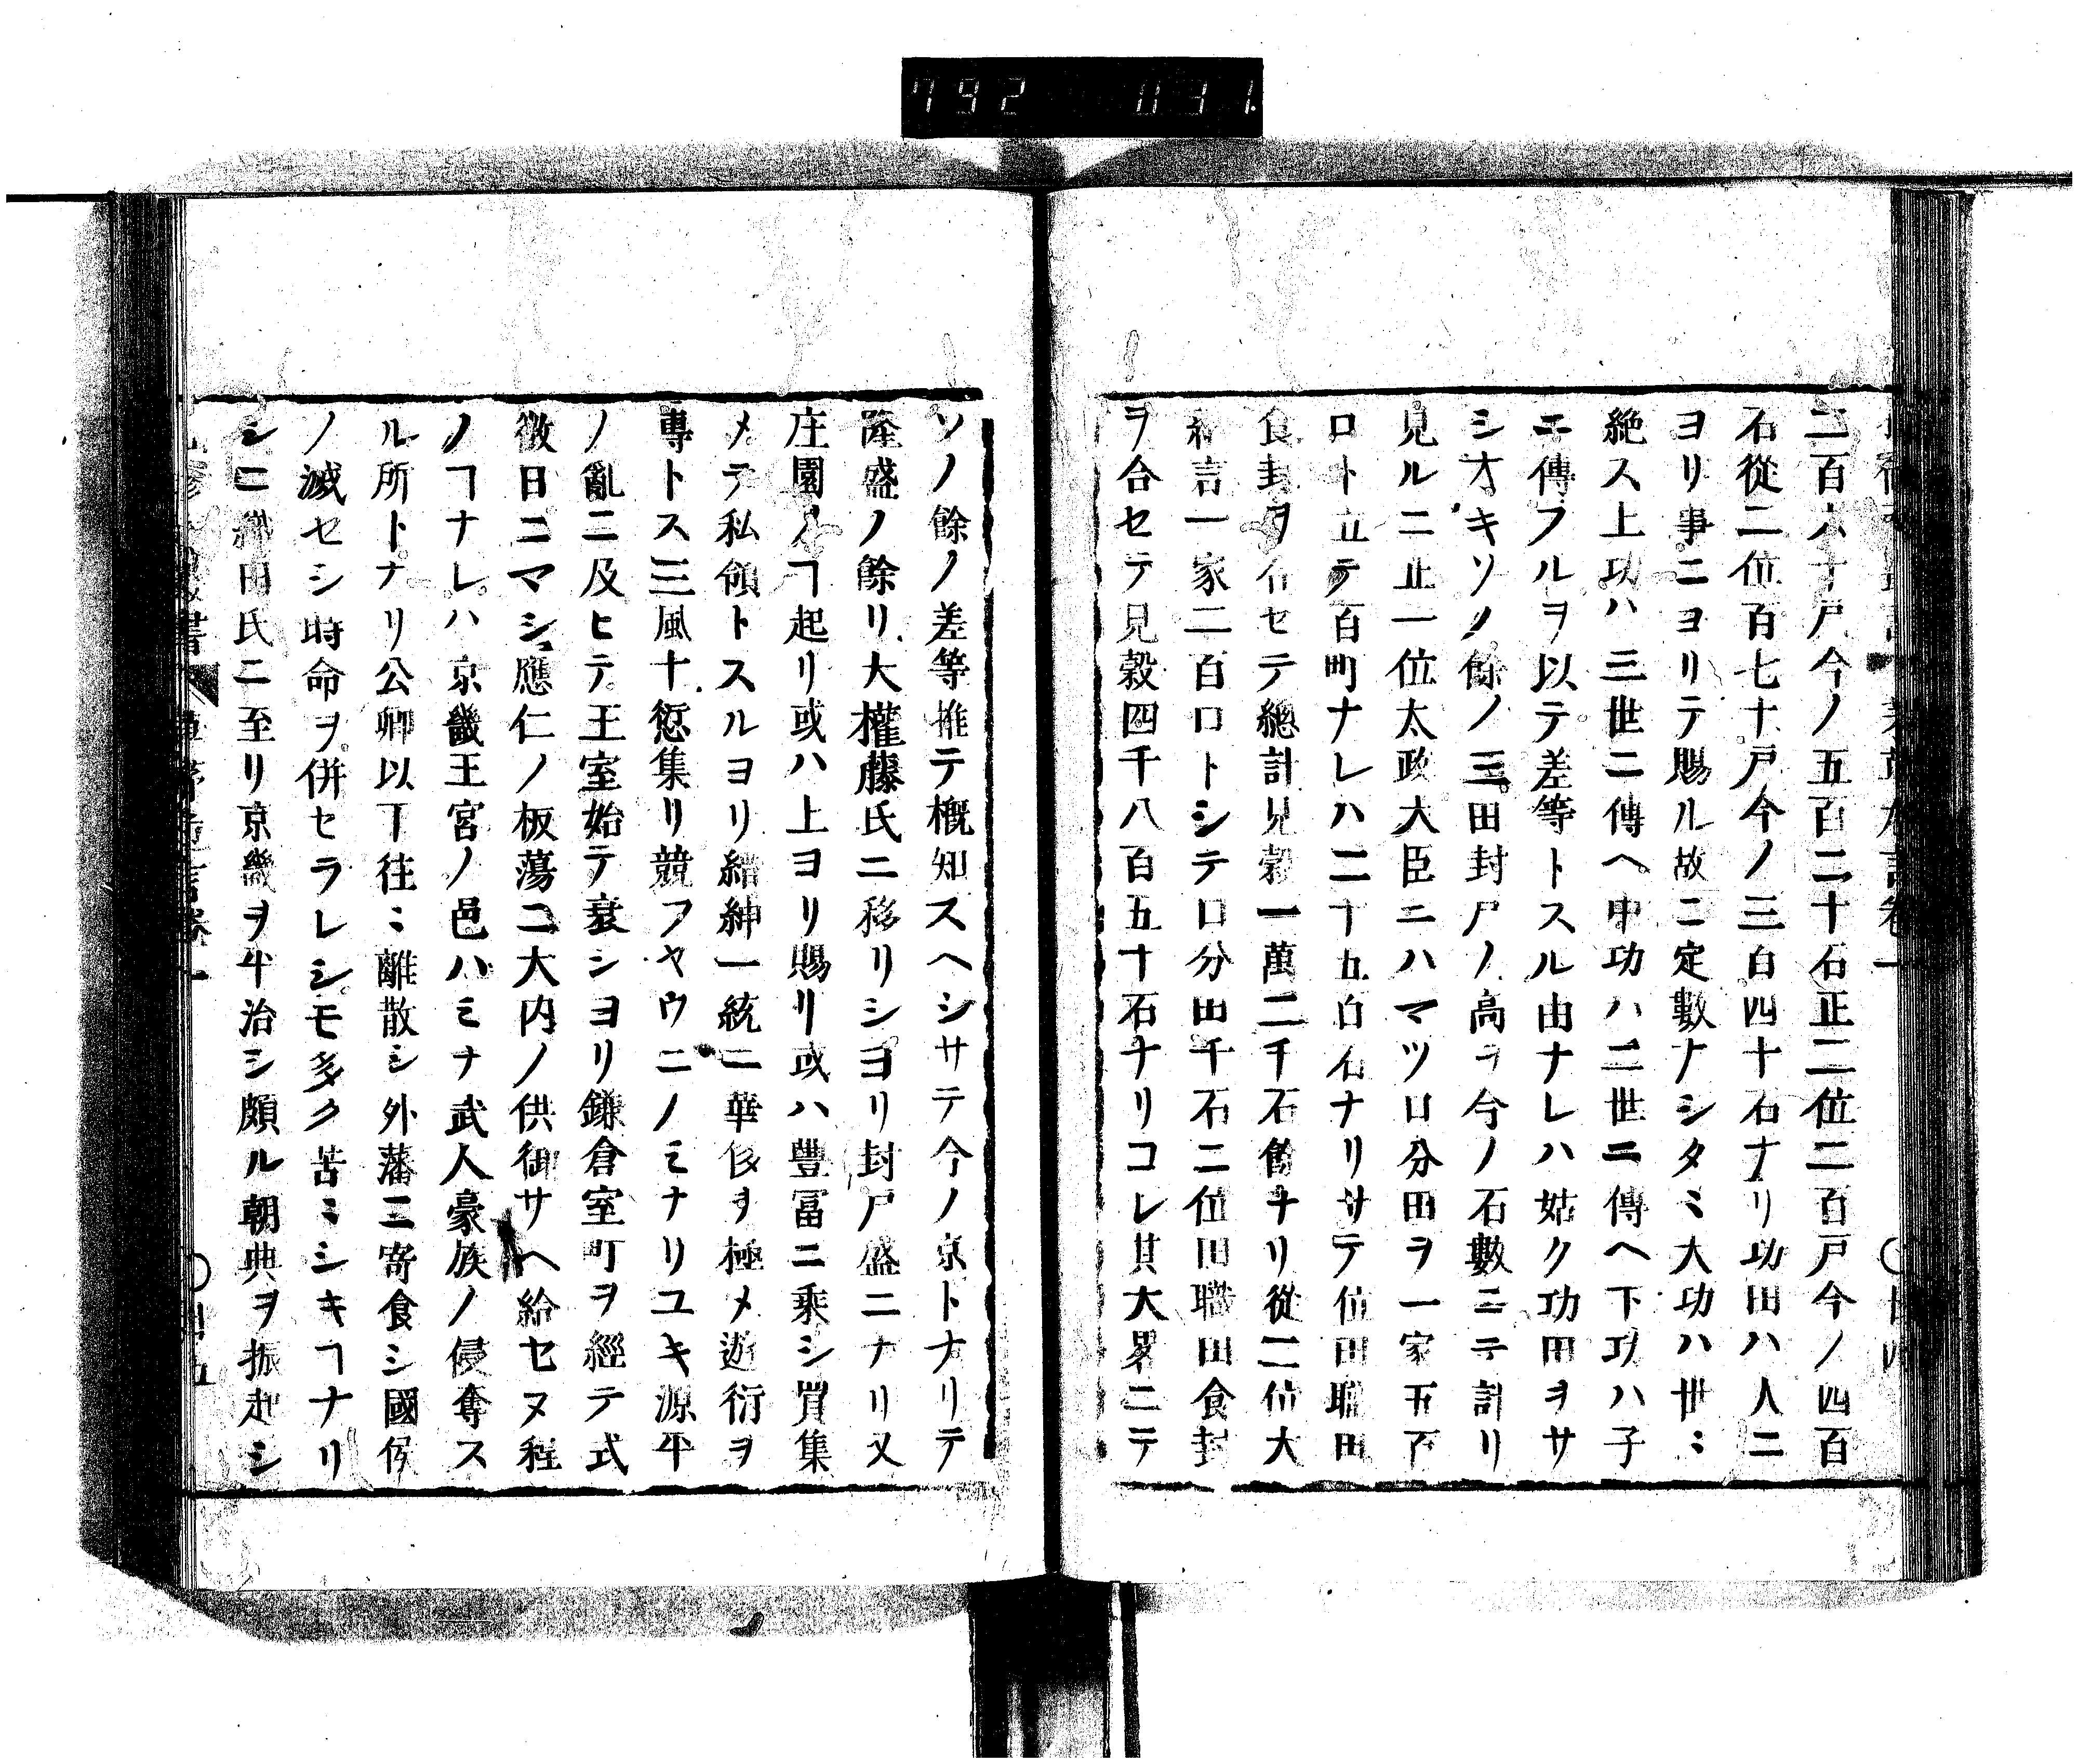 792 031
二百六十戸今ノ五百二十石正二位二百戸今ノ四百
石從二位百七十戸今ノ三百四十石ナリ功田ハ人ニ
ヨリ事ニヨリテ賜ル故ニ定數ナシタミ大功ハ世ミ
絶ス上功ハ三世ニ傳ヘ中功ハ二世ニ傳ヘ下功ハ子
ニ傳フルヲ以テ差等トスル由ナレハ姑ク功田ヲサ
シオキソノ餘ノ三田封戸ノ高ヲ今ノ石數ニテ計リ
見ルニ正一位太政大臣ニハマツ口分田ヲ一家五百
口ト立テ百町ナレハ二千五百石ナリサテ位田職田
食封ヲ合セテ總計見穀一萬二千石餘ナリ從二位大
納言一家二百口トシテ口分田千石ニ位田職田食封
ヲ合セテ見穀四千八百五十石ナリコレ其大畧ニテ
ソノ餘ノ差等推テ概知スヘシサテ今ノ京トナリテ
隆盛ノ餘リ大權藤氏ニ移リシヨリ封戸盛ニナリ又
庄園ノヿ起リ或ハ上ヨリ賜リ或ハ豐冨ニ乘シ買集
メテ私領トスルヨリ縉紳一統ニ華侈ヲ極メ遊衍ヲ
專トス三風十愆集リ競フヤウニノミナリユキ源平
ノ亂ニ及ヒテ王室始テ衰シヨリ鎌倉室町ヲ經テ式
微日ニマシ應仁ノ板蕩ニ大内ノ供御サヘ給セヌ程
ノヿナレハ京畿王宮ノ邑ハミナ武人豪族ノ侵奪ス
ル所トナリ公卿以下往ミ離散シ外藩ニ寄食シ國侯
ノ滅セシ時命ヲ併セラレシモ多ク苦ミシキヿナリ
シニ織田氏ニ至リ京畿ヲ平治シ頗ル朝典ヲ振起シ